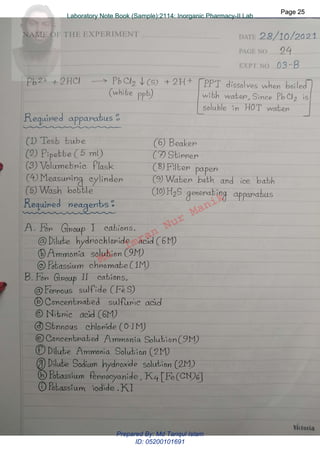 Laboratory Note Book (Sample):2114: Inorganic Pharmacy-II Lab
Page 25
NAME OF THE EXPERIMENT
DATE 28/10/2021
PAGE NO 24
EXPT NO 03-B
Pb2+ + 2HCl → PbCl2 ↓ (s) + 2H+
(white ppt)
[PPT dissolves when boiled
with water, Since PbCl2 is
soluble in HOT water]
Required apparatus:
(1) Test tube
(2) Pipette (5 ml)
(3) Volumetric flask
(4) Measuring cylinder
(5) Wash bottle
(6) Beaker
(7) Stirrer
(8) Filter paper
(9) Water bath and ice bath
(10) H2S generating apparatus
Required reagents:
A. For Group I cations.
(a) Dilute hydrochloride acid (6M)
(b) Ammonia solution (9M)
(c) Potassium chromate (1M)
B. For Group II cations.
(a) Ferrous sulfide (FeS)
(b) Concentrated sulfuric acid
(c) Nitric acid (6M)
(d) Stannous chloride (0.1M)
(e) Concentrated Ammonia Solution (9M)
(f) Dilute Ammonia Solution (2M)
(g) Dilute Sodium hydroxide solution (2M)
(h) Potassium ferrocyanide, K4[Fe(CN)6]
(i) Potassium iodide. KI
Imran Nur Manik
Victoria
Prepared By: Md Tariqul Islam
ID: 05200101691